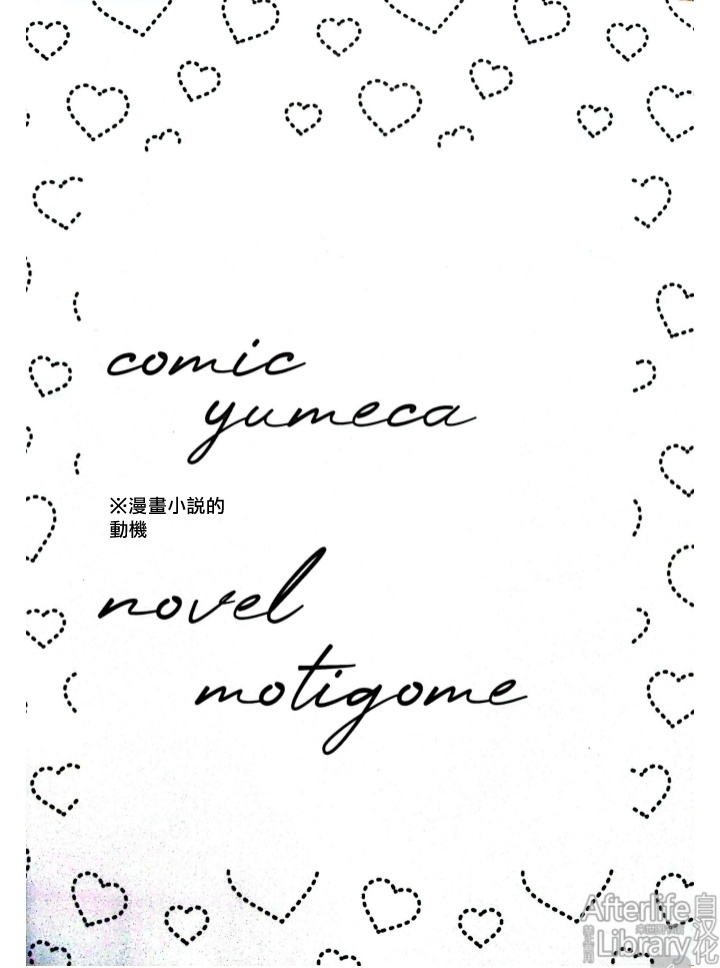 comic
yumeca
※漫畫小説的
動機
novel
motigome
Afterlife
Library
自汉化